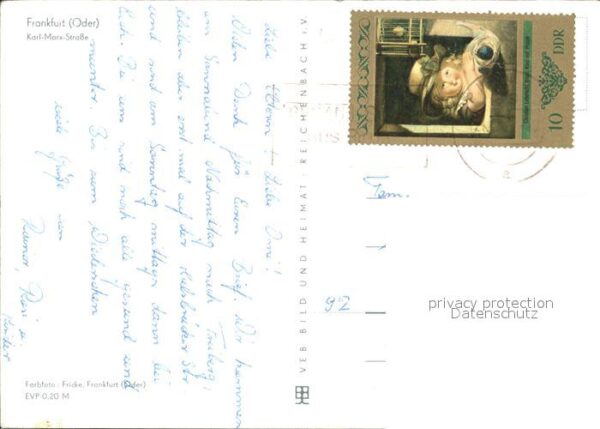 Frankfurt (Oder)
Karl-Marx-Straße
Liebe Eltern! Liebe Omi!
Vielen Dank für Euren Brief. Wir kommen
am Sonnabend Nachmittag nach Freiberg,
bleiben aber erst mal auf der Halsbrücker Str.
und sind am Sonntag mittag dann bei
Euch. Bis um und nach alle gesund und
munter. Bis zum Wiedersehen
viele Grüße von
Reiner, Rosi u.
Kinder
Farbfoto: Fricke, Frankfurt (Oder)
EVP 0,20 M
VEB BILD UND HEIMAT · REICHENBACH i. V.
DDR
10
Fam.
privacy protection
Datenschutz